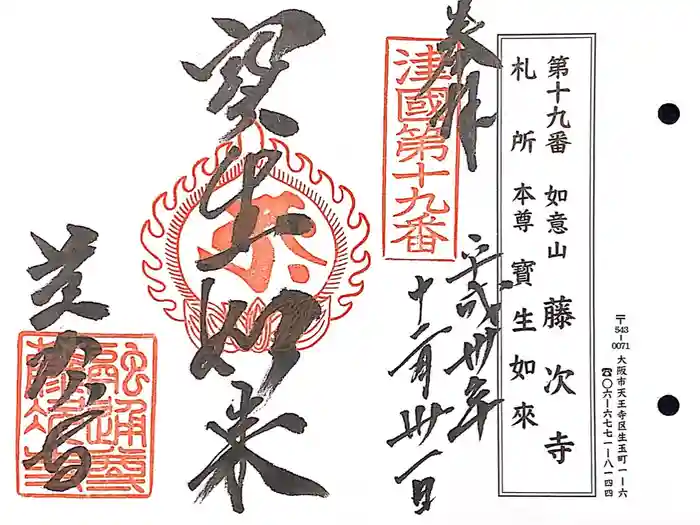 第十九番 如意山 藤次寺
札所 本尊 寶生如來
〒543-0071 大阪市天王寺区生玉町一ー六
☎〇六ー六七七一ー八一四四
奉拝
津國第十九番
平成卅年
十二月卅一日
寶生如来
藤次寺